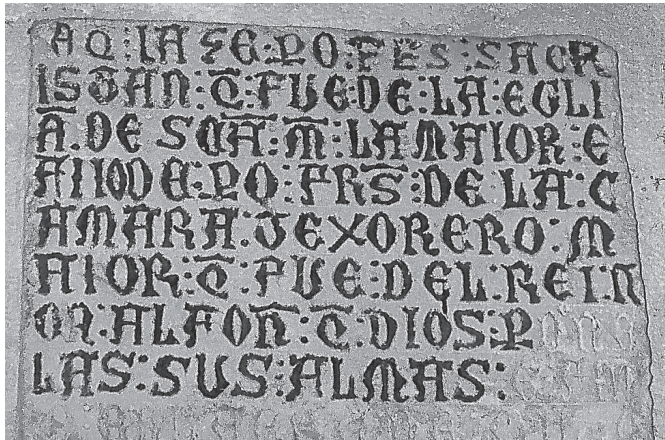 AQ : IASE : PO : FES : SACR
ISTAN : Q̄ : FUE : DE : LA : EGLI
Ā . DE SCĀ : M̄ : LA MAIOR : E
FIJO DE : PO : FRS̄ : DE LA : C
AMARA : TEXORERO : M
AIOR : Q̄ : FUE : DEL : REI : N
ON : ALFON̄ : Q̄ : DIOS : P
LAS : SUS : ALMAS :